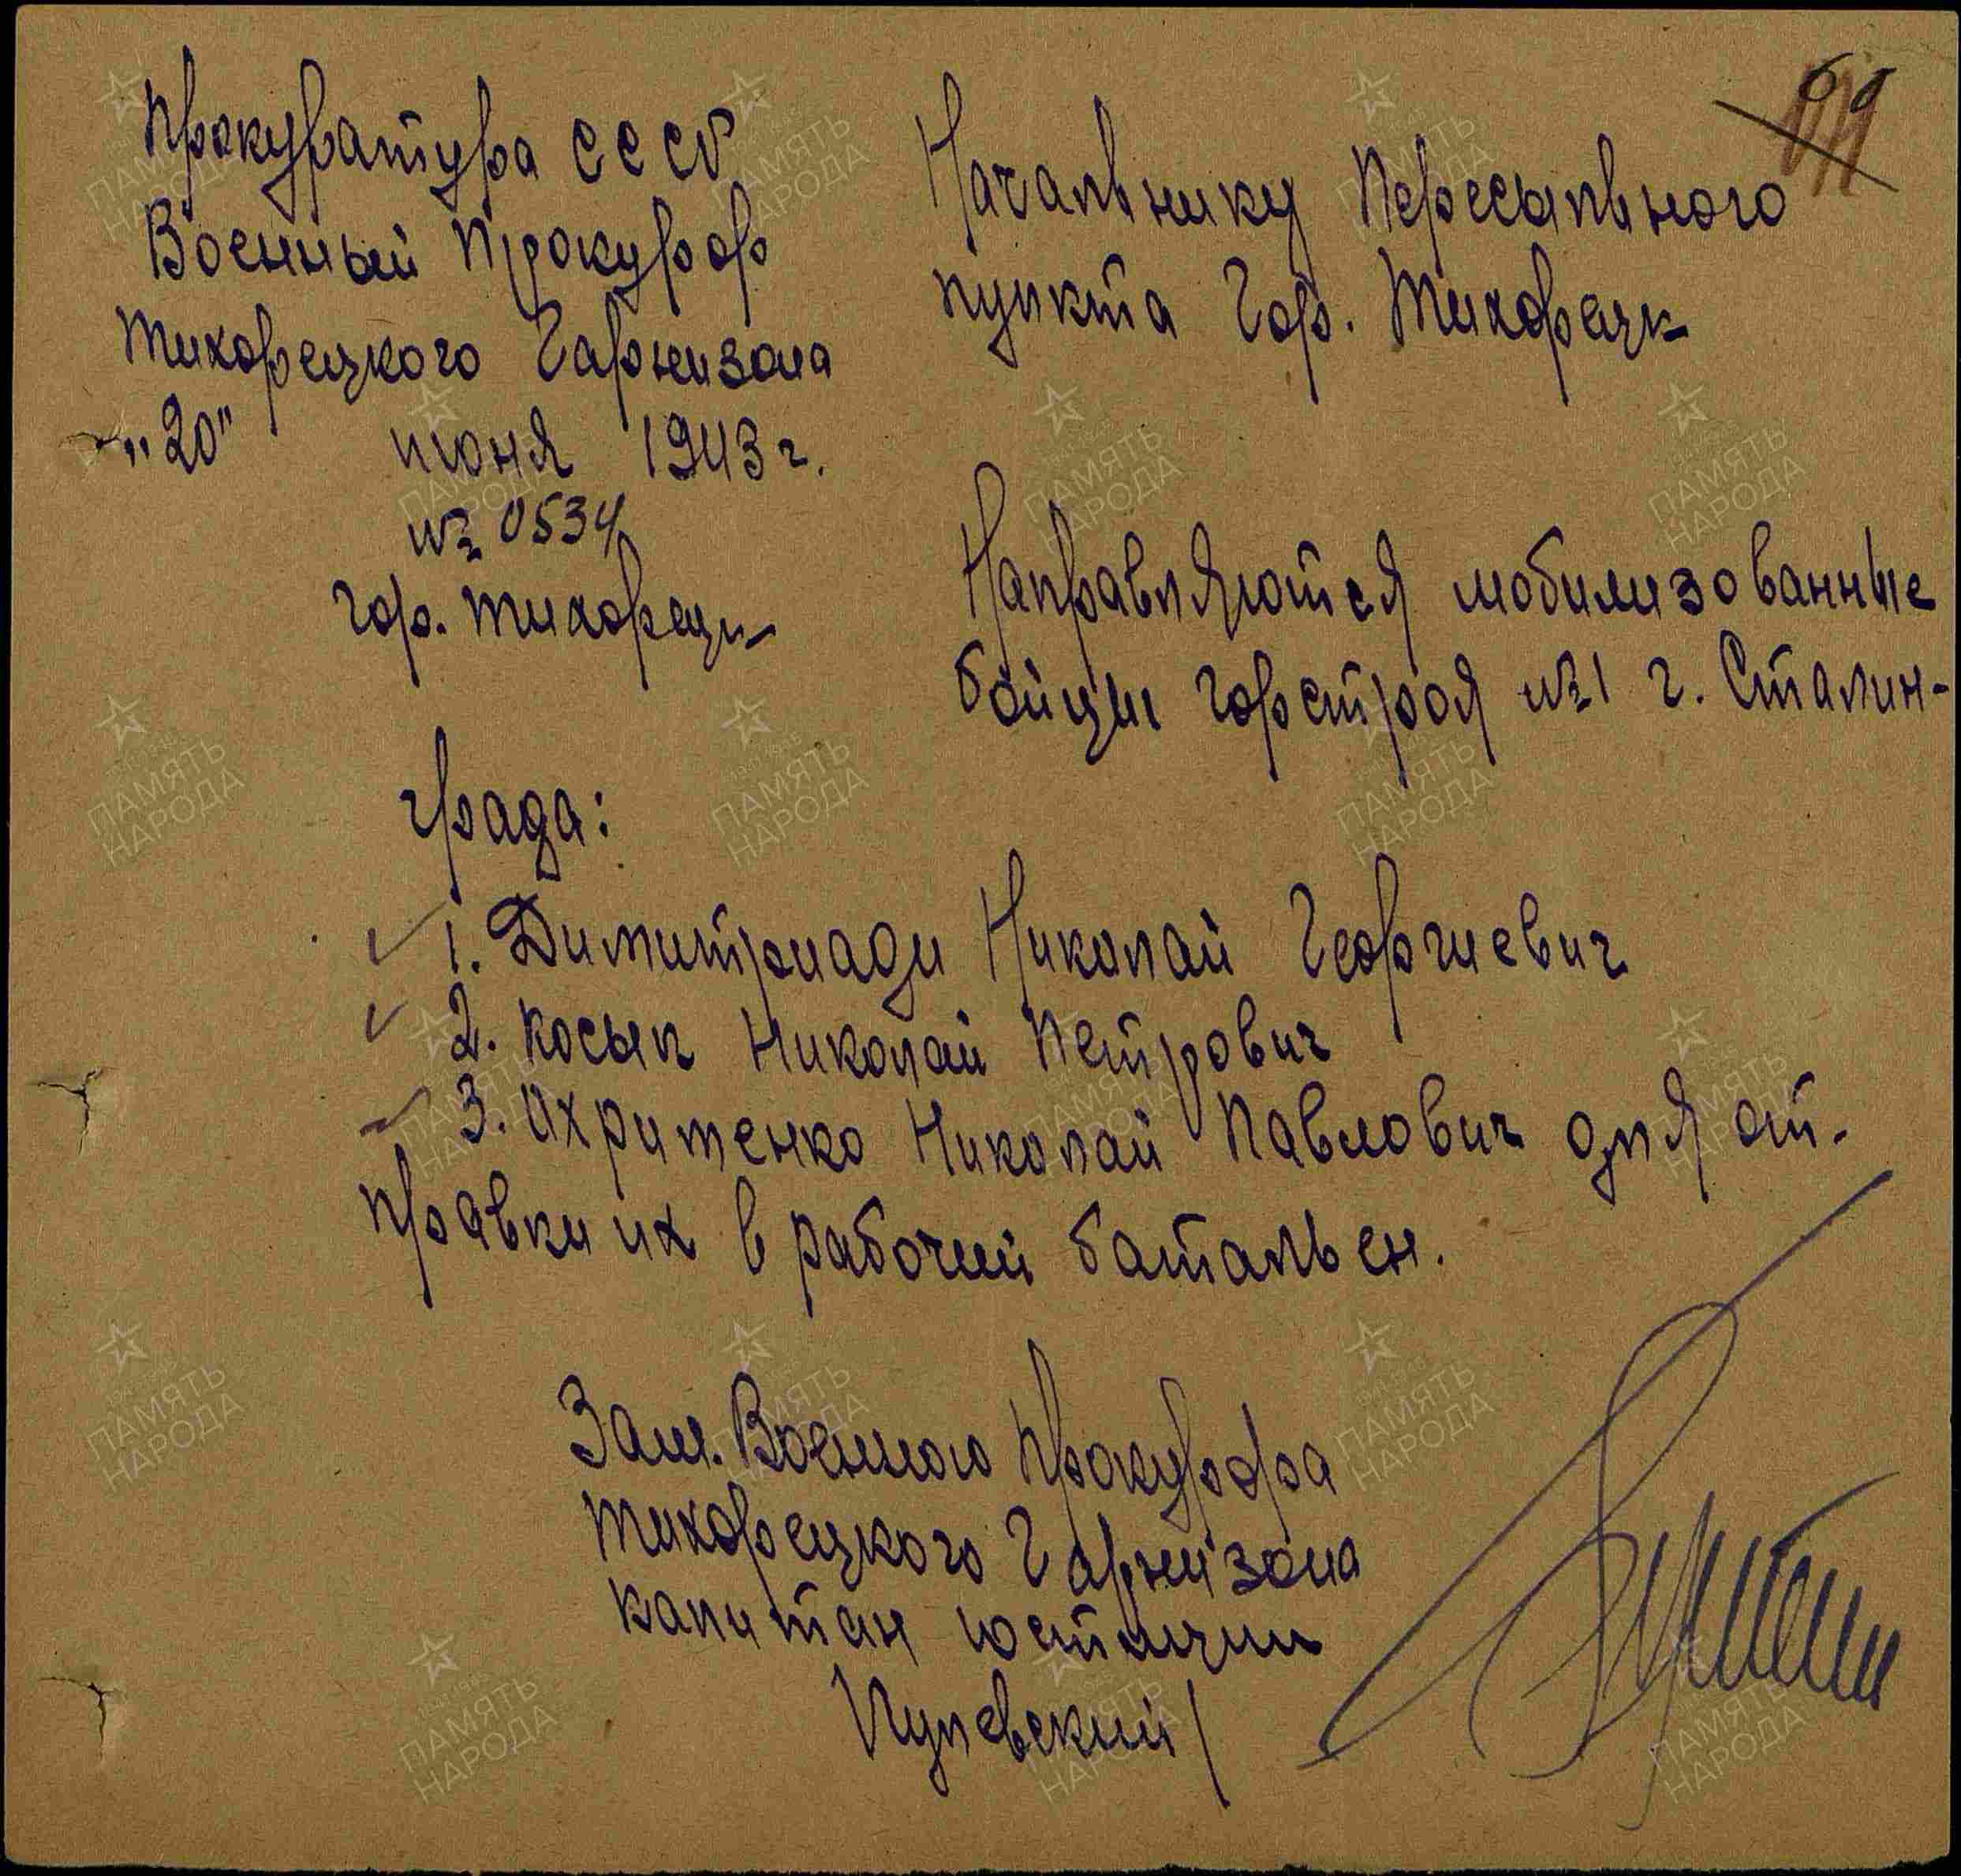 Прокуратура СССР
Военный Прокурор
Тихорецкого Гарнизона
"20" июня 1943 г.
№ 0534
гор. Тихорецк
Начальнику Пересыльного
пункта Гор. Тихорецк
Направляются мобилизованные
бойцы горстроя №1 г. Сталин-
града:
1. Димитриади Николай Георгиевич
2. Косып Николай Петрович
3. Охритенко Николай Павлович для от-
правки их в рабочий батальен.
Зам. Военного Прокурора
Тихорецкого Гарнизона
капитан юстиции
ПАМЯТЬ
НАРОДА